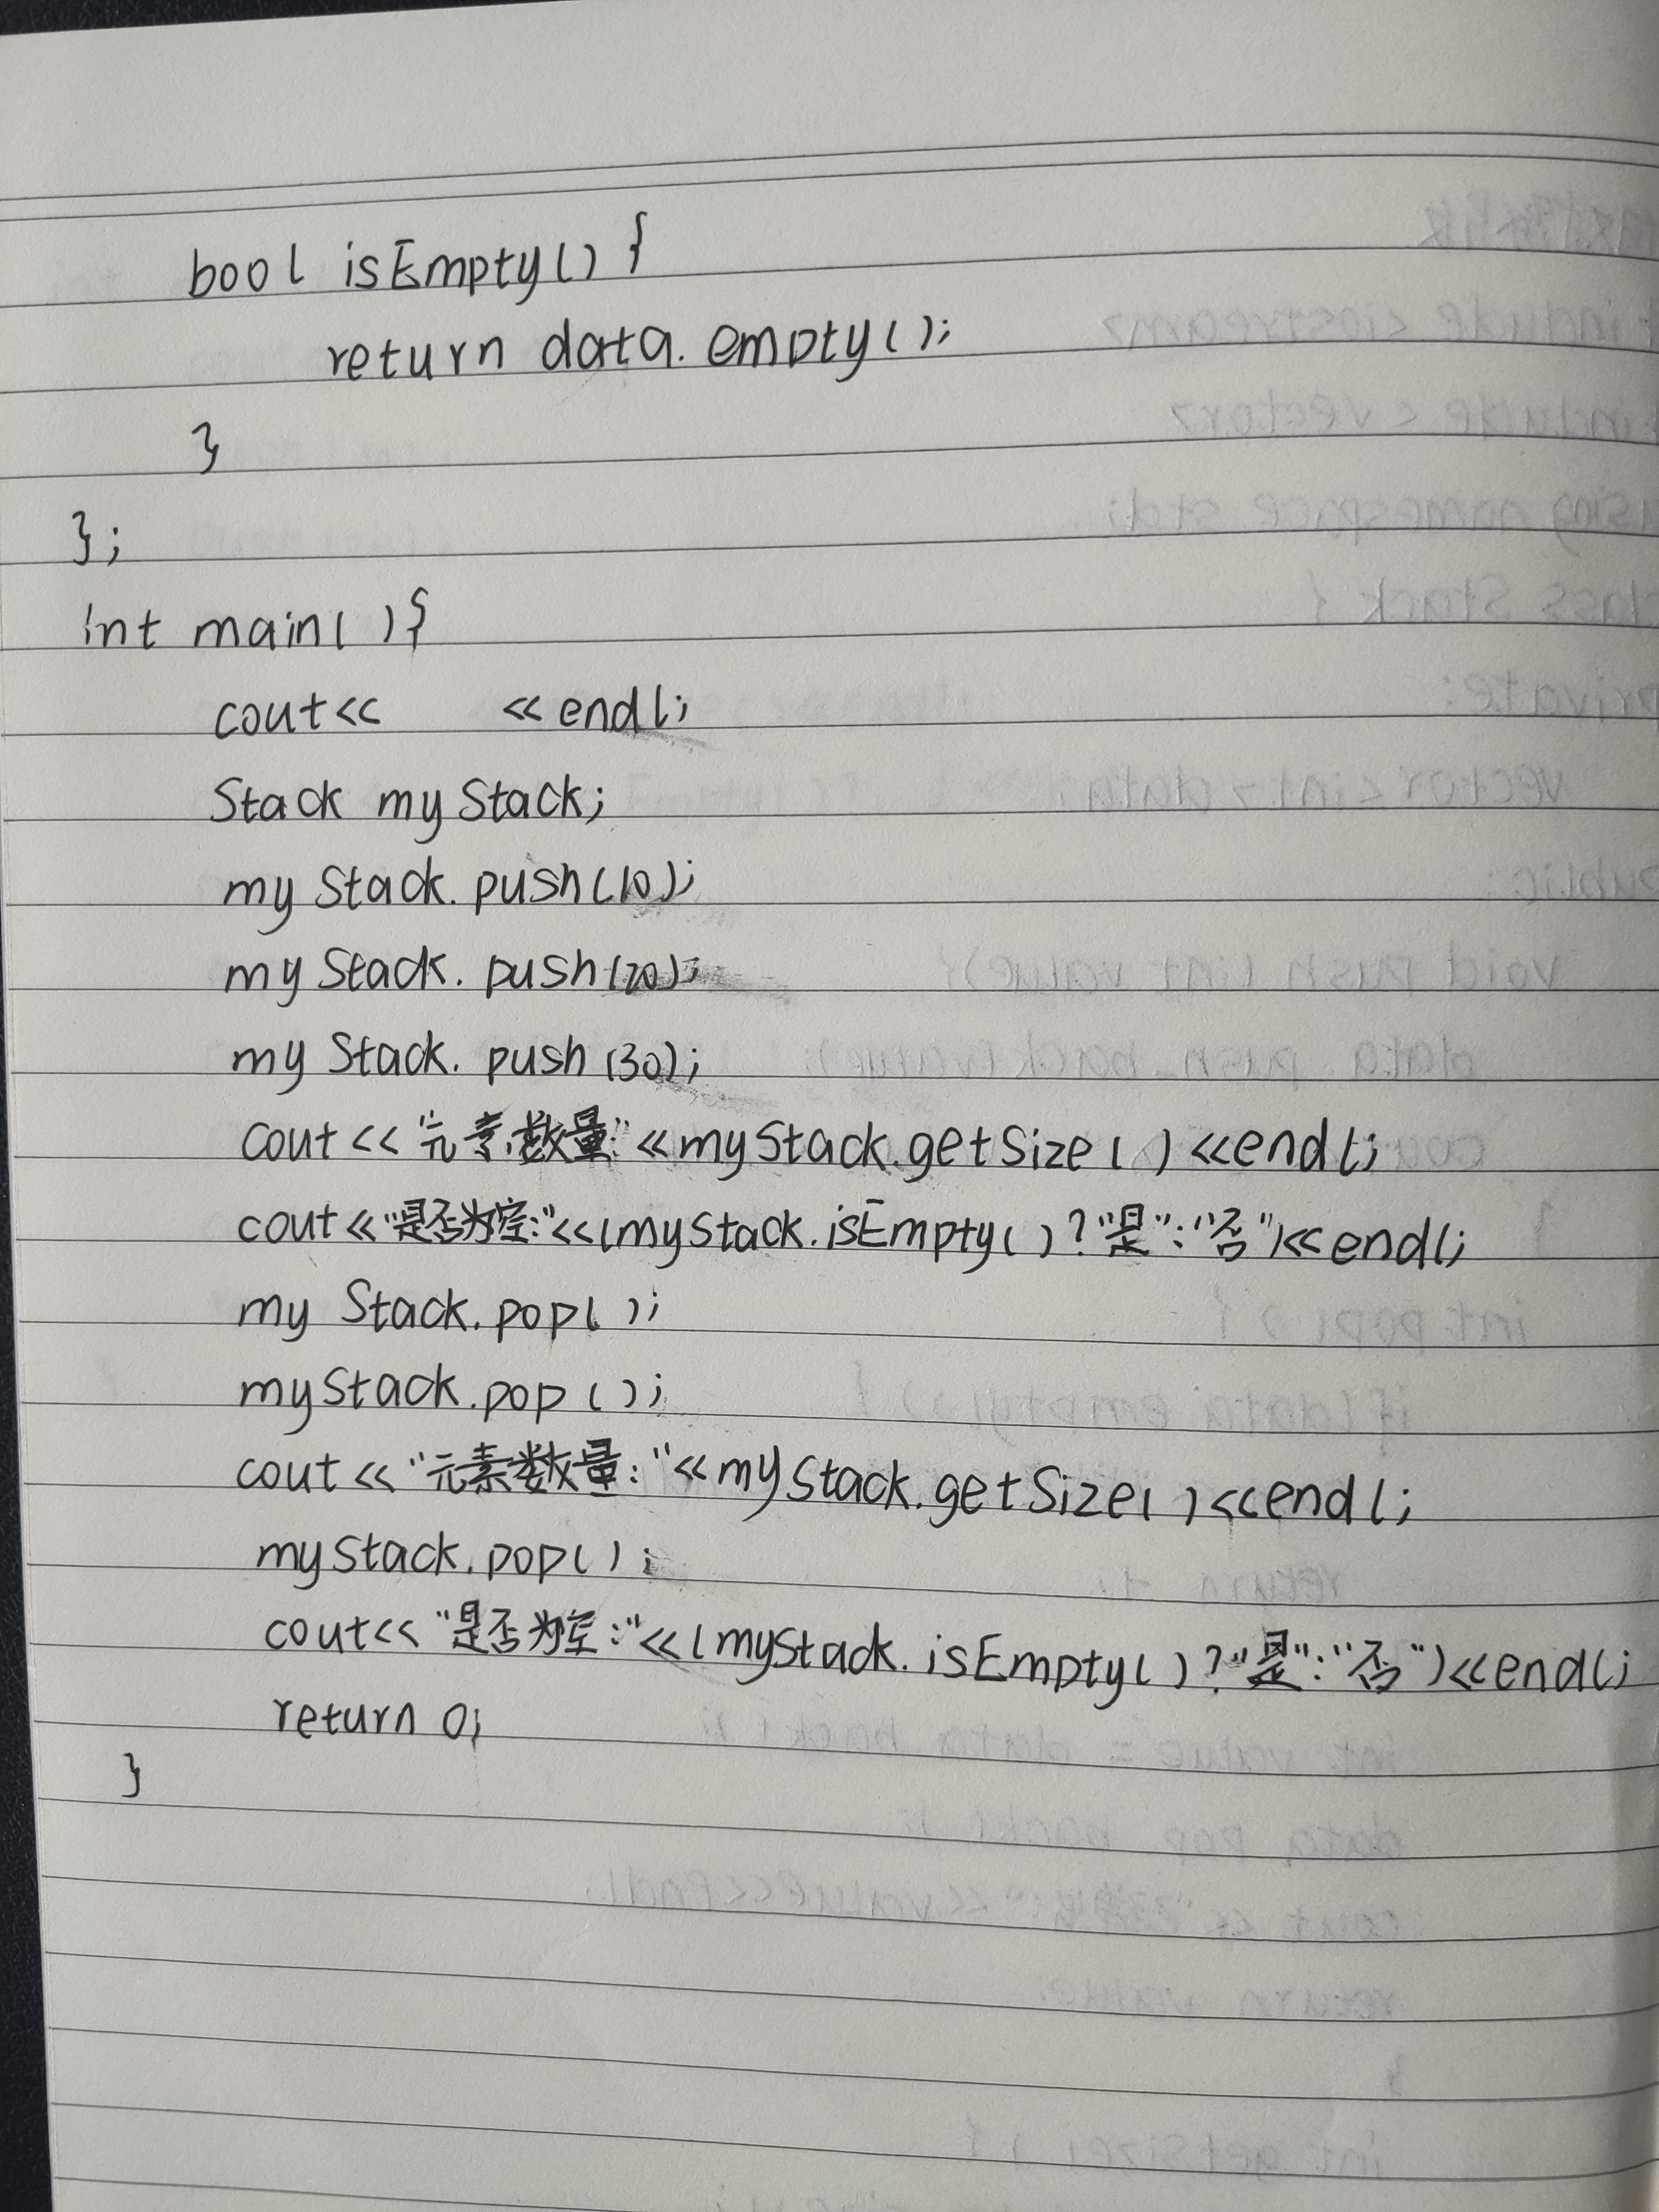 bool isEmpty() {
return data.empty();
}
};
int main(){
cout<< <<endl;
Stack myStack;
myStack.push(10);
myStack.push(20);
myStack.push(30);
cout<<"元素数量:"<<myStack.getSize()<<endl;
cout<<"是否为空:"<<(myStack.isEmpty()?"是":"否")<<endl;
myStack.pop();
myStack.pop();
cout<<"元素数量:"<<myStack.getSize()<<endl;
myStack.pop();
cout<<"是否为空:"<<(myStack.isEmpty()?"是":"否")<<endl;
return 0;
}